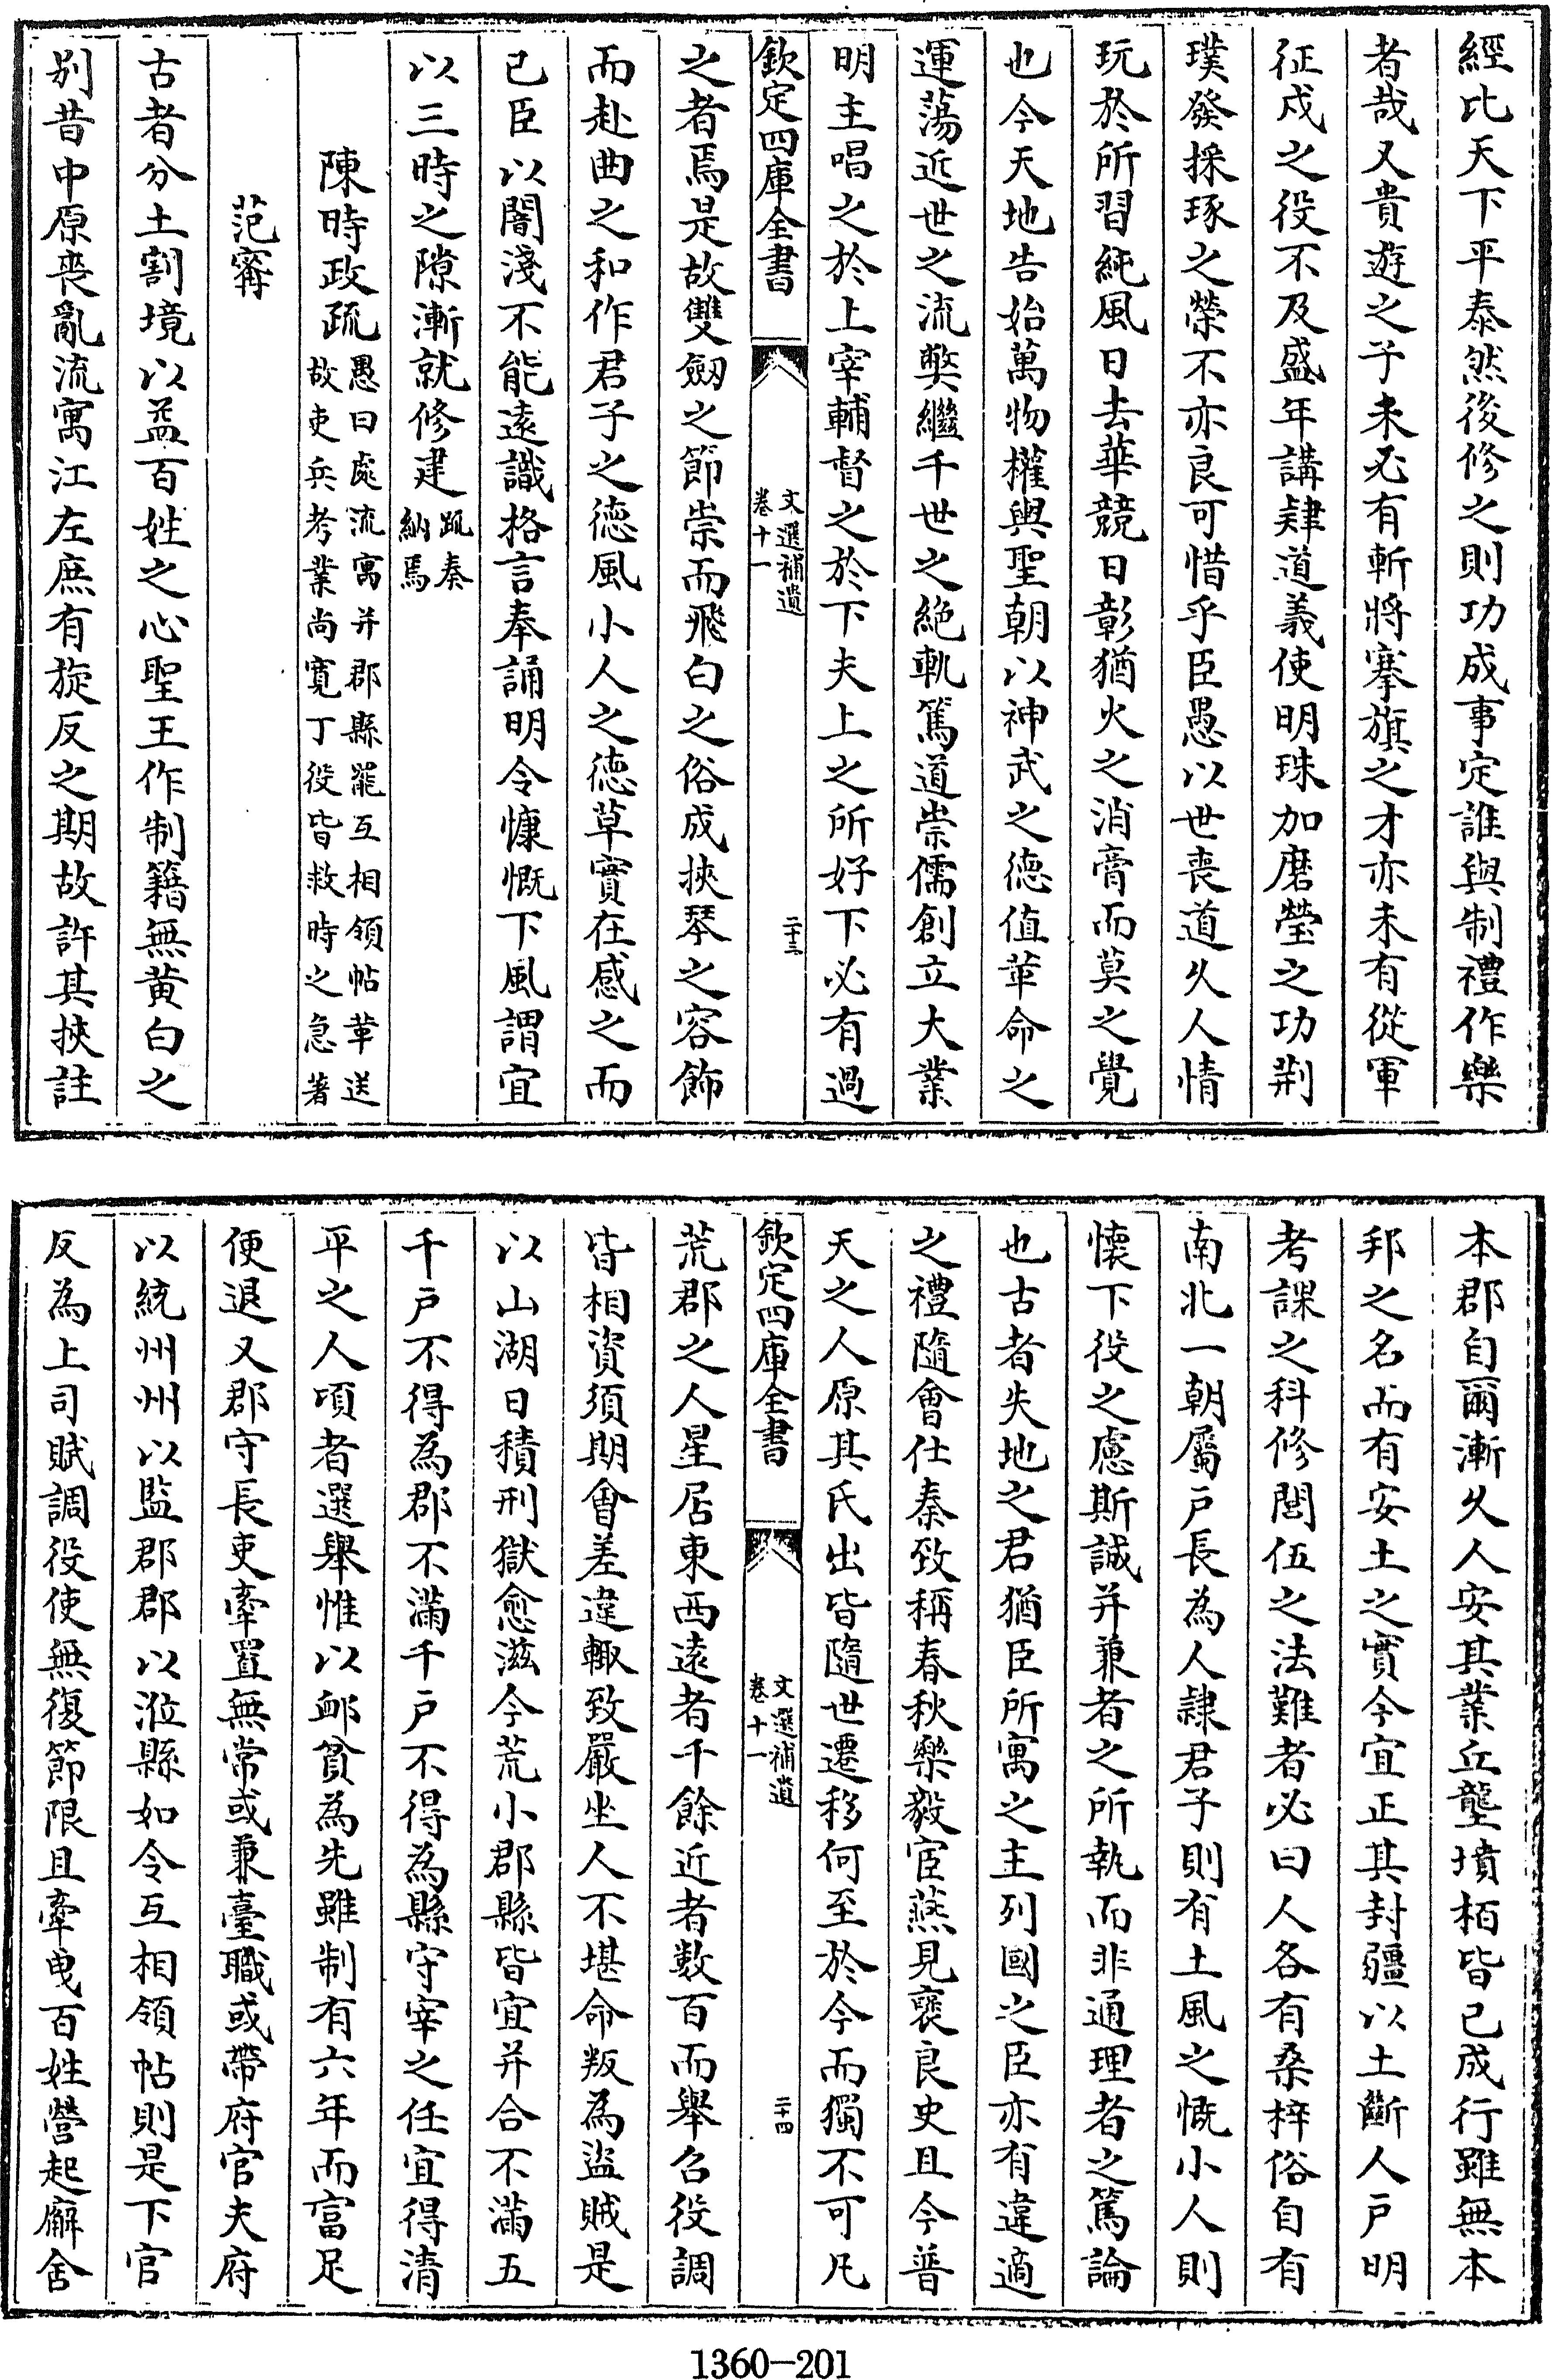 經比天下平泰然後修之則功成事定誰與制禮作樂
者哉又貴遊之子未必有斬將搴旗之才亦未有從軍
征戍之役不及盛年講肄道義使明珠加磨瑩之功荆
璞發採琢之榮不亦良可惜乎臣愚以世喪道久人情
玩於所習純風日去華競日彰猶火之消膏而莫之覺
也今天地告始萬物權輿聖朝以神武之德值革命之
運蕩近世之流弊繼千世之絶軌篤道崇儒創立大業
明主唱之於上宰輔督之於下夫上之所好下必有過
欽定四庫全書
文選補遺
卷十一
二十三
之者焉是故雙劔之節崇而飛白之俗成挾琴之容飾
而赴曲之和作君子之德風小人之德草實在感之而
已臣以闇淺不能遠識格言奉誦明令慷慨下風謂宜
以三時之隙漸就修建疏奏
納焉
陳時政疏愚曰處流寓并郡縣罷互相領帖革送
故吏兵考業尚寛丁役皆救時之急著
范甯
古者分土割境以益百姓之心聖王作制籍無黄白之
别昔中原喪亂流寓江左庶有旋反之期故許其挾註
本郡自爾漸久人安其業丘壟墳栢皆已成行雖無本
邦之名而有安土之實今宜正其封疆以土斷人戸明
考課之科修閭伍之法難者必曰人各有桑梓俗自有
南北一朝屬戸長為人隷君子則有土風之慨小人則
懷下役之慮斯誠并兼者之所執而非通理者之篤論
也古者失地之君猶臣所寓之主列國之臣亦有違適
之禮隨會仕秦致稱春秋樂毅宦燕見襃良史且今普
天之人原其氏出皆隨世遷移何至於今而獨不可凡
欽定四庫全書
文選補遺
卷十一
二十四
荒郡之人星居東西遠者千餘近者數百而舉召役調
皆相資須期會差違輙致嚴坐人不堪命叛為盜賊是
以山湖日積刑獄愈滋今荒小郡縣皆宜并合不滿五
千戸不得為郡不滿千戸不得為縣守宰之任宜得清
平之人頃者選舉惟以䘏貧為先雖制有六年而富足
便退又郡守長吏牽置無常或兼臺職或帶府官夫府
以統州州以監郡郡以涖縣如令互相領帖則是下官
反為上司賦調役使無復節限且牽曳百姓營起廨舍
1360-201